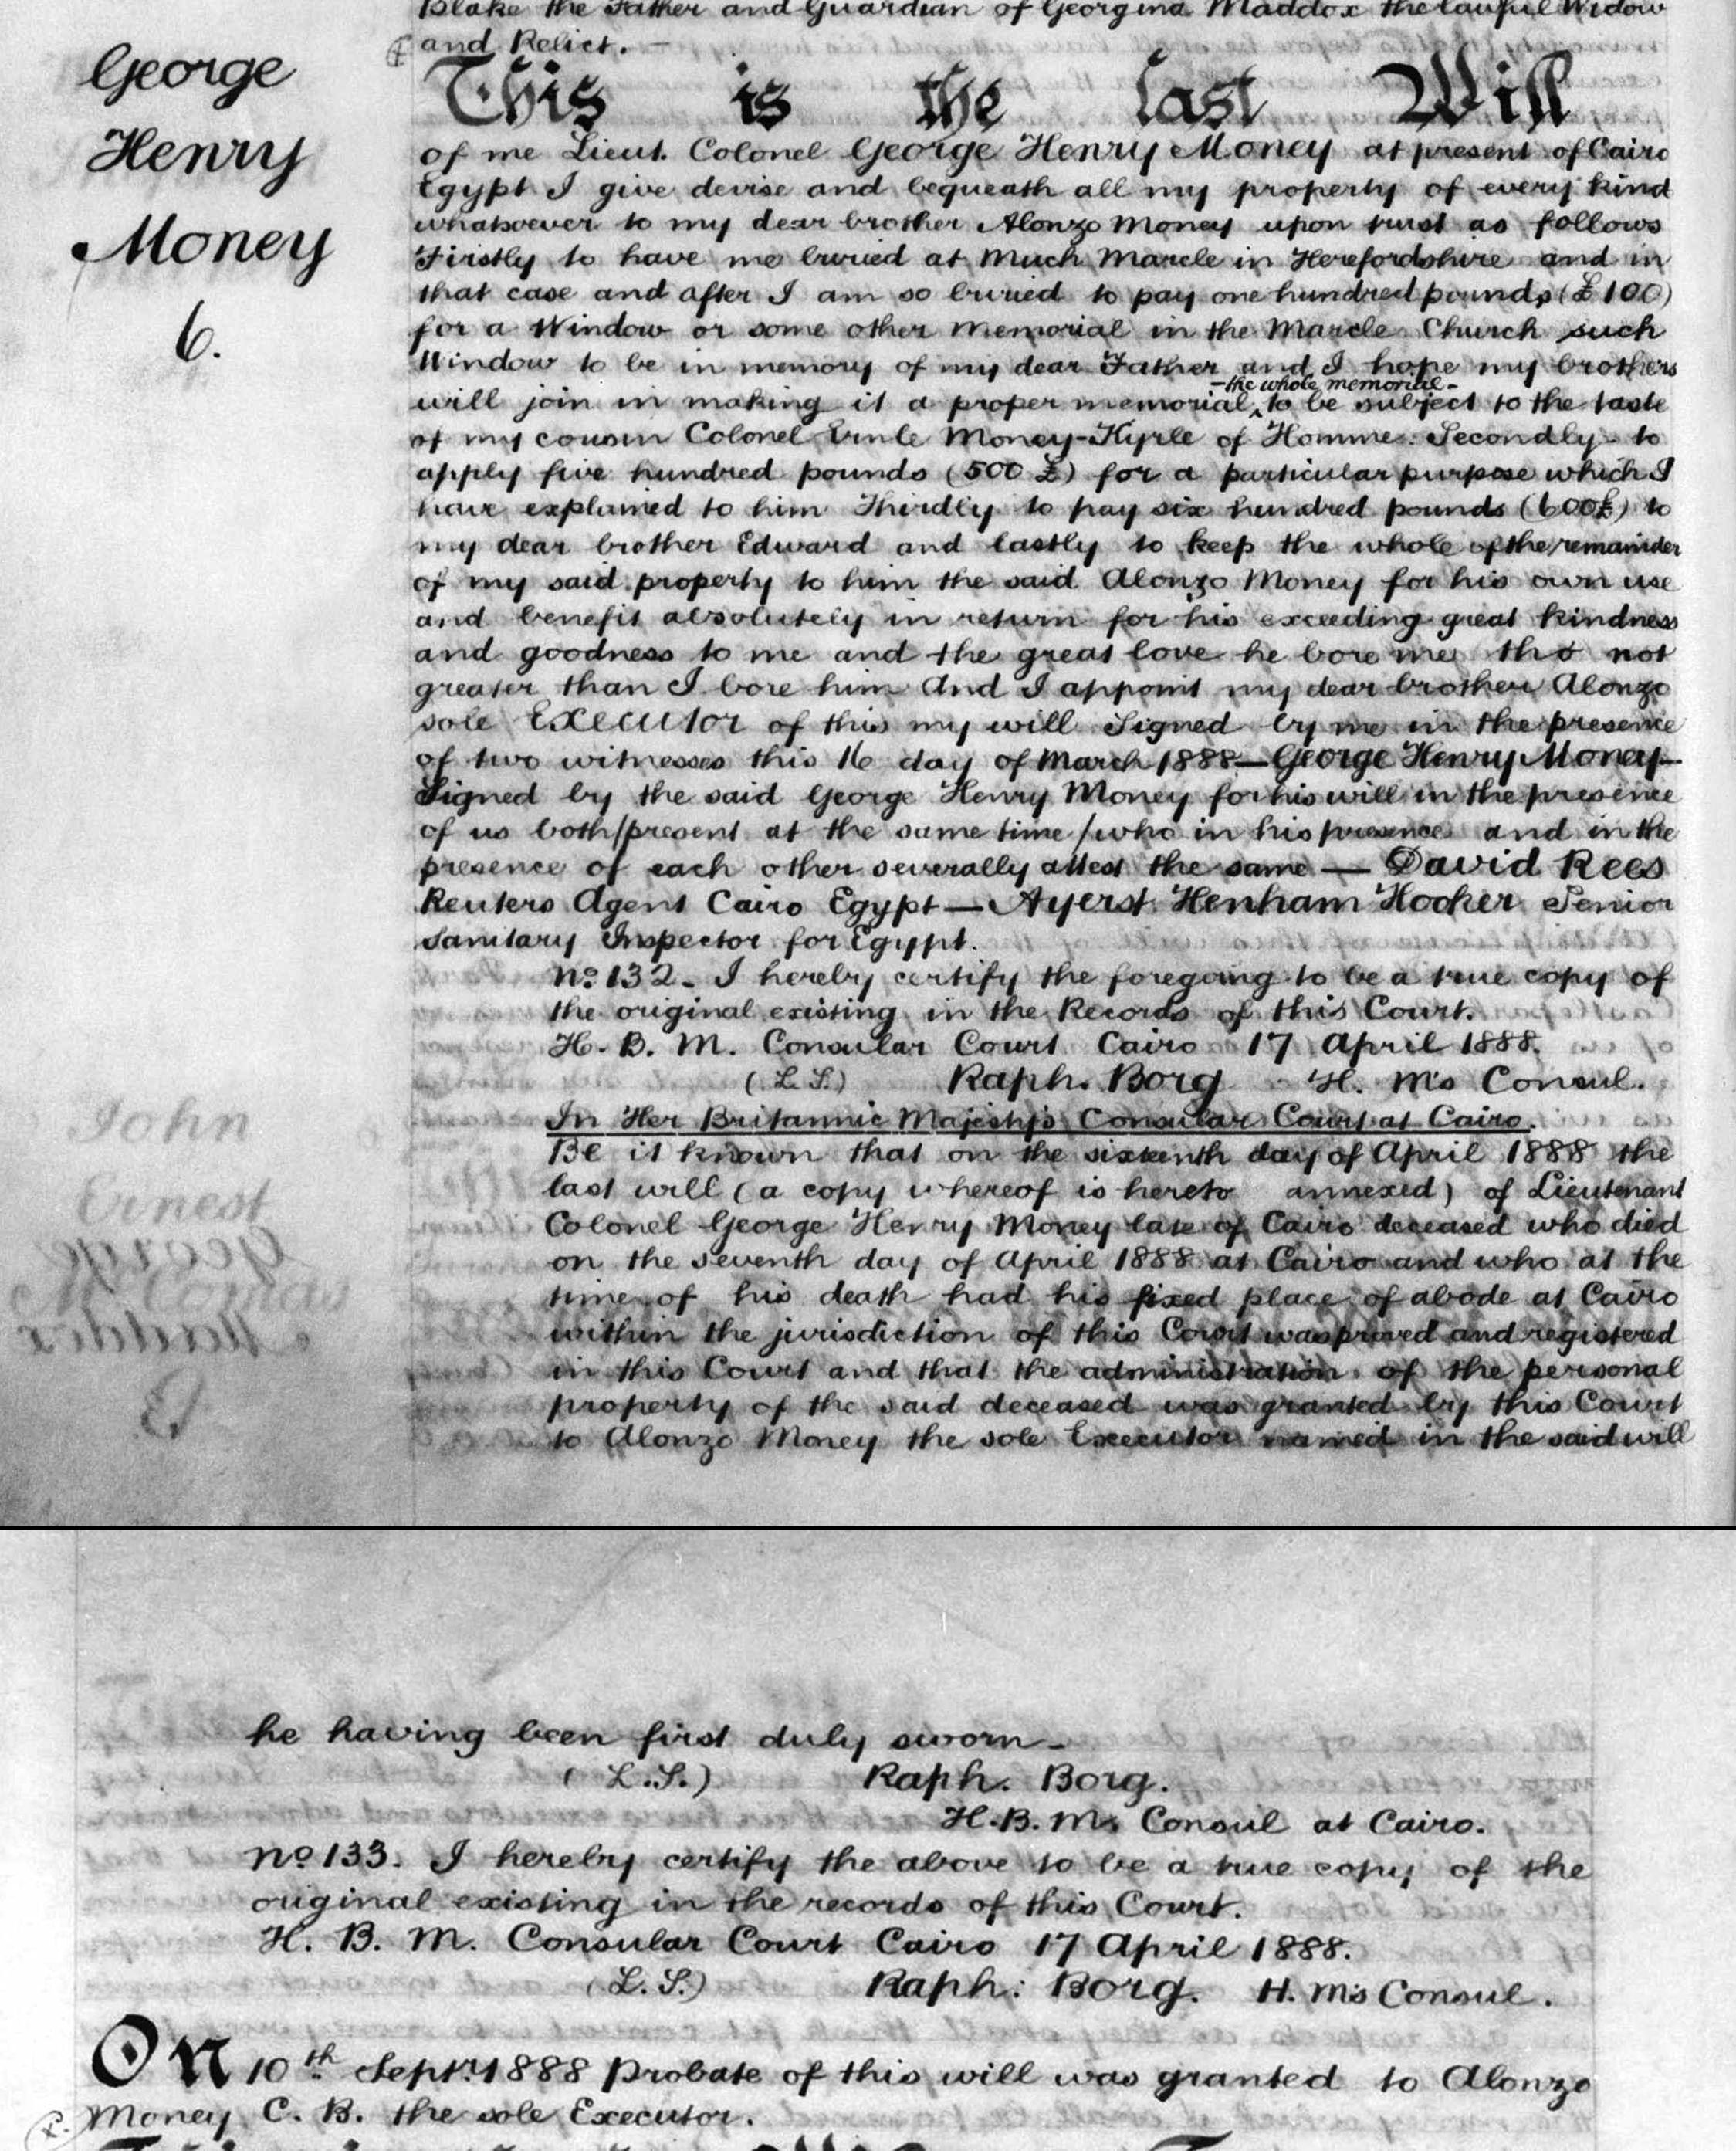 Blake the Father and Guardian of Georgina Maddox the lawful Widow
and Relict.
George
Henry
Money
6.
This is the last Will
of me Lieut. Colonel George Henry Money at present of Cairo
Egypt I give devise and bequeath all my property of every kind
whatsoever to my dear brother Alonzo Money upon trust as follows
Firstly to have me buried at Much Marcle in Herefordshire and in
that case and after I am so buried to pay one hundred pounds (£100)
for a Window or some other memorial in the Marcle Church such
Window to be in memory of my dear Father and I hope my brothers
- the whole memorial -
will join in making it a proper memorial ‸ to be subject to the taste
of my cousin Colonel Ernle Money-Kyrle of Homme. Secondly to
apply five hundred pounds (500 £) for a particular purpose which I
have explained to him Thirdly to pay six hundred pounds (600£) to
my dear brother Edward and lastly to keep the whole of the remainder
of my said property to him the said Alonzo Money for his own use
and benefit absolutely in return for his exceeding great kindness
and goodness to me and the great love he bore me tho' not
greater than I bore him And I appoint my dear brother Alonzo
sole Executor of this my will Signed by me in the presence
of two witnesses this 16 day of March 1888 — George Henry Money —
Signed by the said George Henry Money for his will in the presence
of us both/present at the same time/who in his presence and in the
presence of each other severally attest the same — David Rees
Reuters Agent Cairo Egypt — Ayerst Henham Hooker Senior
Sanitary Inspector for Egypt.
No. 132. I hereby certify the foregoing to be a true copy of
the original existing in the Records of this Court.
H. B. M. Consular Court Cairo 17 April 1888.
(L.S.) Raph. Borg H. M's Consul.
In Her Britannic Majesty's Consular Court at Cairo.
Be it known that on the sixteenth day of April 1888 the
last will (a copy whereof is hereto annexed) of Lieutenant
Colonel George Henry Money late of Cairo deceased who died
on the seventh day of April 1888 at Cairo and who at the
time of his death had his fixed place of abode at Cairo
within the jurisdiction of this Court was proved and registered
in this Court and that the administration of the personal
property of the said deceased was granted by this Court
to Alonzo Money the sole Executor named in the said will
John
Ernest
George
Maddox
he having been first duly sworn -
(L.S.) Raph. Borg.
H.B.M's Consul at Cairo.
No. 133. I hereby certify the above to be a true copy of the
original existing in the records of this Court.
H. B. M. Consular Court Cairo 17 April 1888.
(L.S.) Raph: Borg. H. M's Consul.
On 10th Septr. 1888 Probate of this will was granted to Alonzo
Money C. B. the sole Executor.